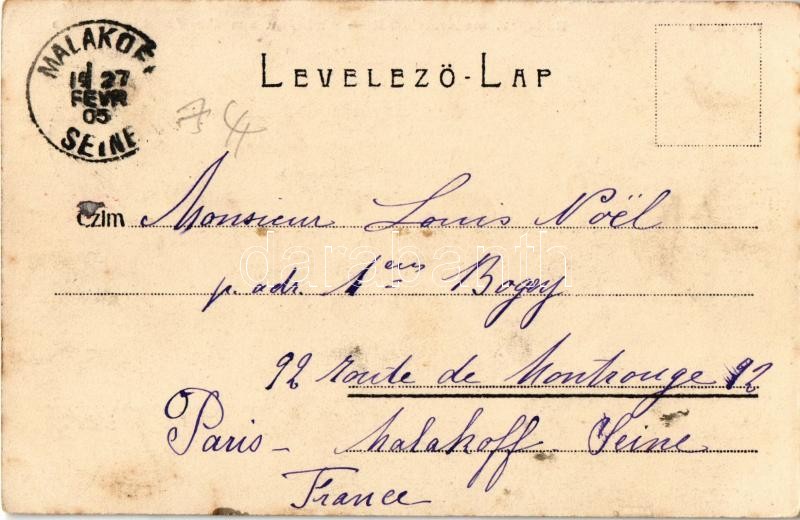 MALAKOFF
19 27
FEVR
05
SEINE
74
LEVELEZŐ-LAP
Czim Monsieur Louis Noël
darabanth
p. adr. Bogey
92 route de Montrouge 92
Paris - Malakoff Seine
France